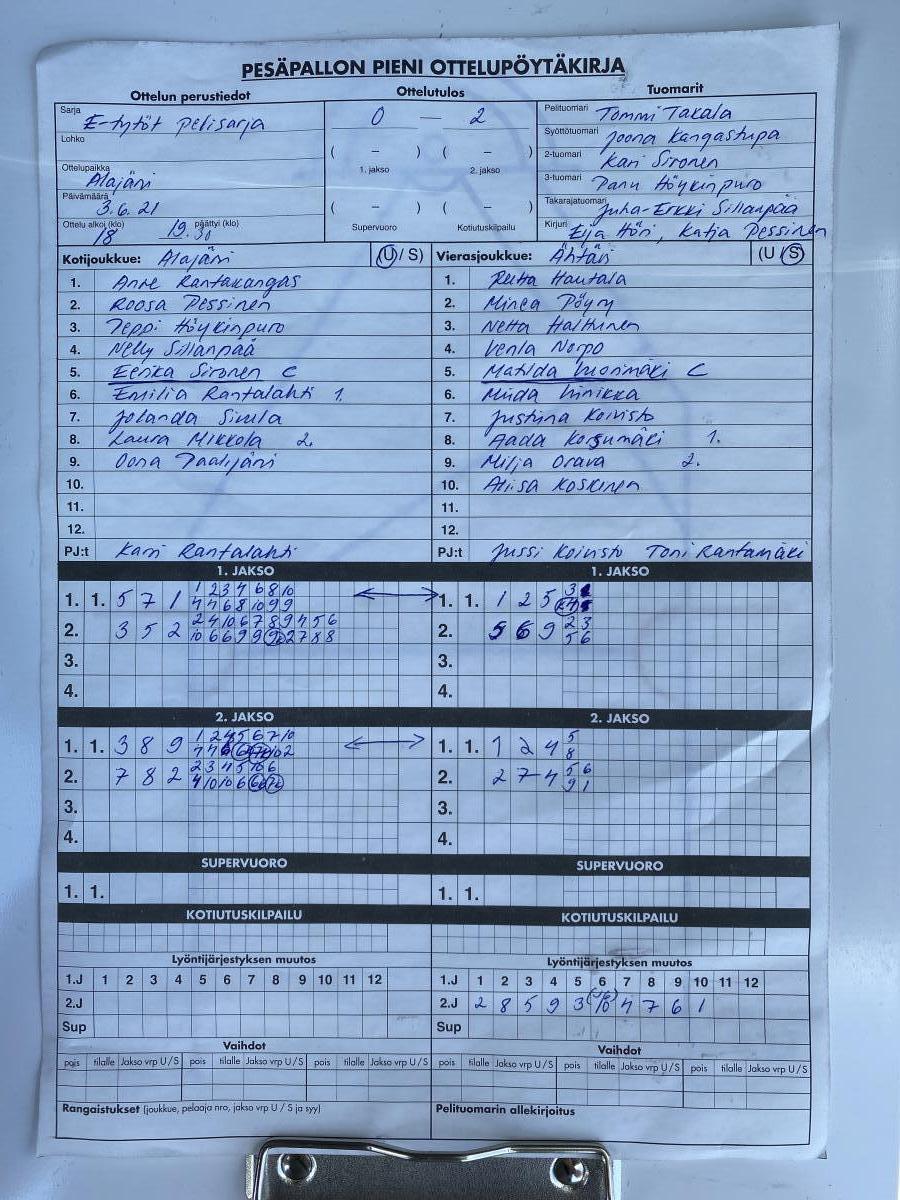 PESÄPALLON PIENI OTTELUPÖYTÄKIRJA
Ottelun perustiedot
Sarja E-tytöt pelisarja
Lohko
Ottelupaikka Alajärvi
Päivämäärä 3.6.21
Ottelu alkoi (klo) 18 päättyi (klo) 19.30
Ottelutulos
0 — 2
( – ) ( – )
1. jakso 2. jakso
( – ) ( – )
Supervuoro Kotiutuskilpailu
Tuomarit
Pelituomari Tommi Takala
Syöttötuomari Joona Kangastupa
2-tuomari Kari Sironen
3-tuomari Panu Höykinpuro
Takarajatuomari Juha-Erkki Sillanpää
Kirjuri Eija Höri, Katja Pessinen
Kotijoukkue: Alajärvi (U / S)
1. Anne Rantakangas
2. Roosa Pessinen
3. Peppi Höykinpuro
4. Nelly Sillanpää
5. Eerika Sironen C
6. Emilia Rantalahti 1.
7. Jolanda Sivula
8. Laura Mikkola 2.
9. Oona Paalijärvi
10.
11.
12.
PJ:t Kari Rantalahti
Vierasjoukkue: Ähtäri (U / S)
1. Reita Hautala
2. Minea Pöyry
3. Netta Halttunen
4. Venla Norpo
5. Matilda Vuorimäki C
6. Miida Hinikka
7. Justiina Koivisto
8. Aada Korsumäki 1.
9. Milja Orava 2.
10. Aliisa Koskinen
11.
12.
PJ:t Jussi Koivisto Toni Rantamäki
1. JAKSO
1. 1. 5 7 1
2. 3 5 2
3.
4.
1. JAKSO
1. 1. 1 2 5
2. 5 6 9 2 3
5 6
3.
4.
2. JAKSO
1. 1. 3 8 9
2. 7 8 2
3.
4.
2. JAKSO
1. 1. 1 2 4 5
8
2. 2 7 4 5 6
9 1
3.
4.
SUPERVUORO
1. 1.
SUPERVUORO
1. 1.
KOTIUTUSKILPAILU
KOTIUTUSKILPAILU
Lyöntijärjestyksen muutos
1.J 1 2 3 4 5 6 7 8 9 10 11 12
2.J
Sup
Lyöntijärjestyksen muutos
1.J 1 2 3 4 5 6 7 8 9 10 11 12
2.J 2 8 5 9 3 10 4 7 6 1
Sup
Vaihdot
pois tilalle Jakso vrp U / S pois tilalle Jakso vrp U / S pois tilalle Jakso vrp U / S
Vaihdot
pois tilalle Jakso vrp U / S pois tilalle Jakso vrp U / S pois tilalle Jakso vrp U / S
Rangaistukset (joukkue, pelaaja nro, jakso vrp U / S ja syy)
Pelituomarin allekirjoitus